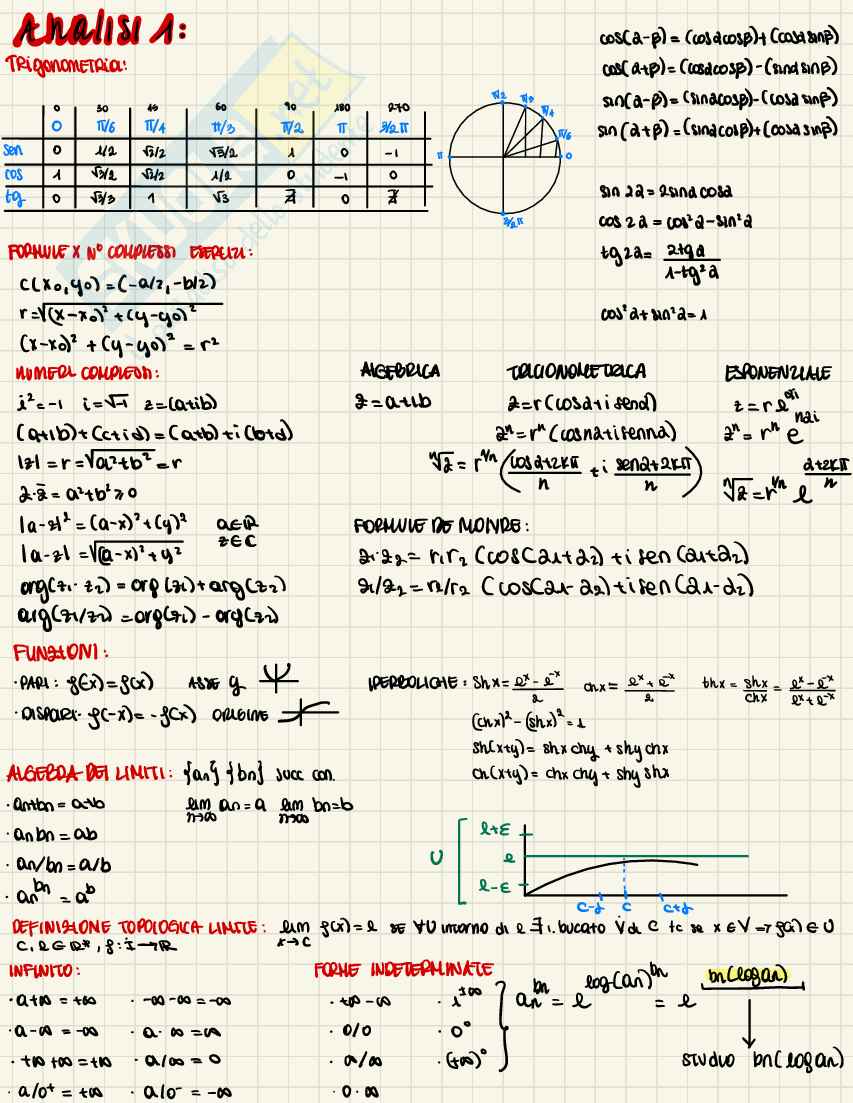 Analisi 1:
TRIGONOMETRIA:
0 30 45 60 90 180 270
0 π/6 π/4 π/3 π/2 π 3/2π
sen 0 1/2 √2/2 √3/2 1 0 -1
cos 1 √3/2 √2/2 1/2 0 -1 0
tg 0 √3/3 1 √3 ∄ 0 ∄
π/2 π/3 π/4 π/6 0 π 3/2π
cos(α-β) = (cosαcosβ)+(cosαsinβ)
cos(α+β) = (cosαcosβ)-(sinαsinβ)
sin(α-β) = (sinαcosβ)-(cosαsinβ)
sin(α+β) = (sinαcosβ)+(cosαsinβ)
sin 2α = 2sinα cosα
cos 2α = cos²α - sin²α
tg 2α = 2tgα / 1-tg²α
cos²α + sin²α = 1
FORMULE X N° COMPLESSI ESERCIZI:
C(x0,y0) = (-a/2, -b/2)
r = √(x-x0)² + (y-y0)²
(x-x0)² + (y-y0)² = r²
NUMERI COMPLESSI:
i² = -1 i = √-1 z = (a+ib)
(a+ib)+(c+id) = (a+b)+i(b+d)
|z| = r = √a²+b² = r
z·z̄ = a²+b² ≥ 0
|a-z|² = (a-x)²+(y)² a∈ℝ
|a-z| = √(a-x)²+y² z∈C
arg(z1·z2) = arg(z1)+arg(z2)
arg(z1/z2) = arg(z1) - arg(z2)
ALGEBRICA
z = a+ib
TRIGONOMETRICA
z = r(cosα+i senα)
zⁿ = rⁿ(cos nα+i sen nα)
ⁿ√z = r^1/n (cos α+2kπ / n + i sen α+2kπ / n)
ESPONENZIALE
z = r e^αi
zⁿ = rⁿ e^nαi
ⁿ√z = r^1/n e^α+2kπ/n
FORMULE DE MOIVRE:
z1·z2 = r1r2 (cos(α1+α2)+i sen(α1+α2)
z1/z2 = r1/r2 (cos(α1-α2)+i sen(α1-α2)
FUNZIONI:
·PARI: f(-x) = f(x) ASSE y
·DISPARI: f(-x) = -f(x) ORIGINE
IPERBOLICHE: Sh x = e^x - e^-x / 2 ch x = e^x + e^-x / 2 th x = sh x / ch x = e^x - e^-x / e^x + e^-x
(ch x)² - (sh x)² = 1
sh(x+y) = sh x ch y + sh y ch x
ch(x+y) = ch x ch y + sh y sh x
ALGEBRA DEI LIMITI: {an} {bn} succ con.
·an+bn = a+b lim n→∞ an = a lim n→∞ bn = b
·an bn = ab
·an/bn = a/b
·an^bn = a^b
U l+ε
l
l-ε
c-δ c c+δ
DEFINIZIONE TOPOLOGICA LIMITE: lim x→c f(x) = l SE ∀U intorno di l ∃ i. bucato V̇ di C tc se x∈V ⇒ f(x)∈U
C, l ∈ ℝ*, f: I→ℝ
INFINITO:
·a+∞ = +∞ ·-∞-∞ = -∞
·a-∞ = -∞ ·a·∞ = ∞
·+∞+∞ = +∞ ·a/∞ = 0
·a/0⁺ = +∞ ·a/0⁻ = -∞
FORME INDETERMINATE
·+∞-∞ ·1^±∞
·0/0 ·0⁰
·∞/∞ ·(+∞)⁰
·0·∞
an^bn = e^log(an)^bn = e^bn(log an)
STUDIO bn(log an)